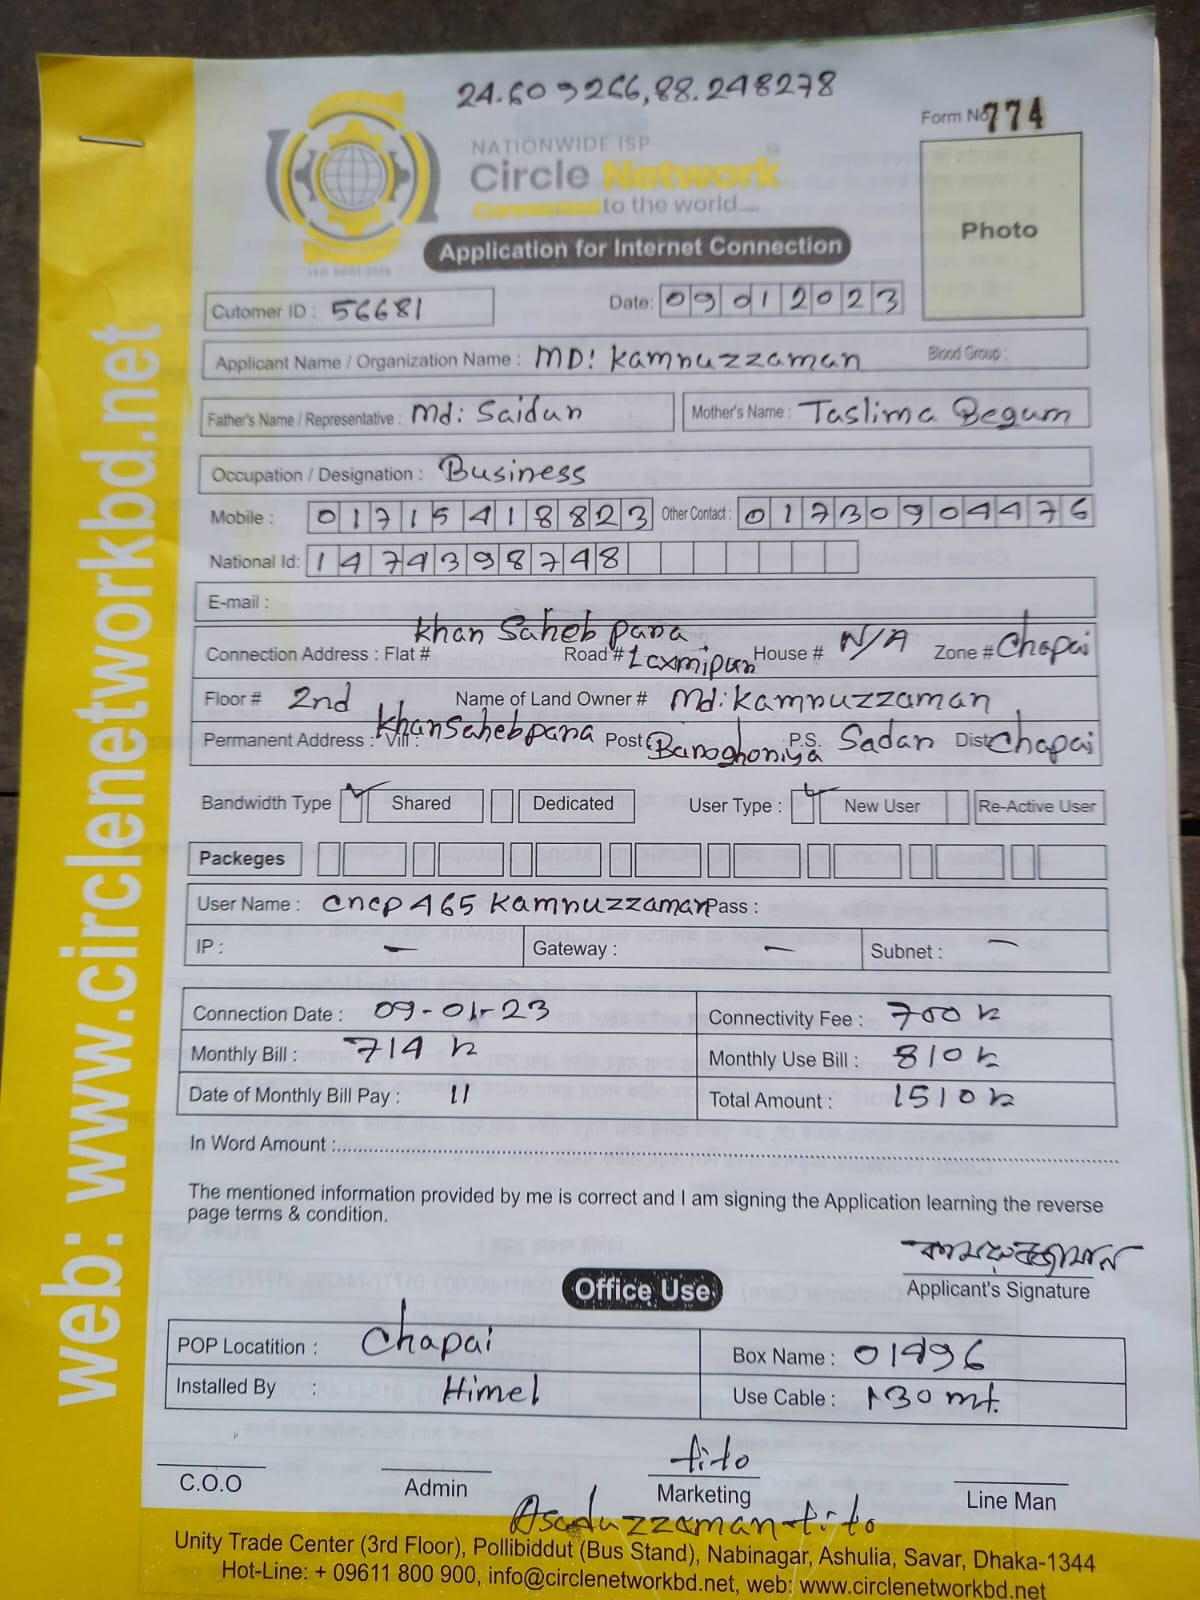 24.609266,88.248278
Form No 774
NATIONWIDE ISP
Circle Network
Connected to the world.....
Photo
Application for Internet Connection
ISO 9001:2015
Cutomer ID : 56681
Date: 09012023
Applicant Name / Organization Name : MD: Kamruzzaman
Blood Group :
Father's Name / Representative : Md: Saidur
Mother's Name : Taslima Begum
Occupation / Designation : Business
Mobile : 01715418823 Other Contact : 01730904476
National Id: 1474398748
E-mail :
Khan Saheb para
Connection Address : Flat # Road # Laxmipur House # N/A Zone # Chapai
Floor # 2nd Name of Land Owner # Md: Kamruzzaman
Permanent Address : Vill : Khansahebpara Post : Baroghoriya P.S. Sadar Dist: Chapai
Bandwidth Type Shared Dedicated User Type : New User Re-Active User
Packeges
User Name : cncp465 Kamruzzaman Pass :
IP : – Gateway : – Subnet : –
Connection Date : 09-01-23 Connectivity Fee : 700 tk
Monthly Bill : 714 tk Monthly Use Bill : 810 tk
Date of Monthly Bill Pay : 11 Total Amount : 1510 tk
In Word Amount :
The mentioned information provided by me is correct and I am signing the Application learning the reverse
page terms & condition.
কামরুজ্জামান
Applicant's Signature
Office Use
POP Locatition : Chapai Box Name :
Installed By : Himel Use Cable : 130 mt.
tito
C.O.O Admin Marketing Line Man
Asaduzzaman tito
Unity Trade Center (3rd Floor), Pollibiddut (Bus Stand), Nabinagar, Ashulia, Savar, Dhaka-1344
Hot-Line: + 09611 800 900, info@circlenetworkbd.net, web: www.circlenetworkbd.net
web: www.circlenetworkbd.net